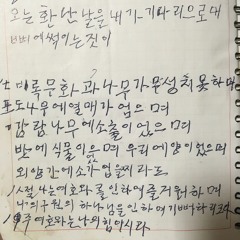 오는 환난 날을 내가 기다리므로대
에 썩이는것이
비록 무화과나무가 무성치 못하며
포도나무에 열매가 업으며
감람나무에 소출이 없으며
밭에 식물이 없으며 우리에 양이 없으며
외양간에 소가 없을지라도
나는 여호와로 인하여 즐거워하며
나의 구원의 하나님을 인하여 기뻐하리로다
주 여호와는 나의 힘이시라